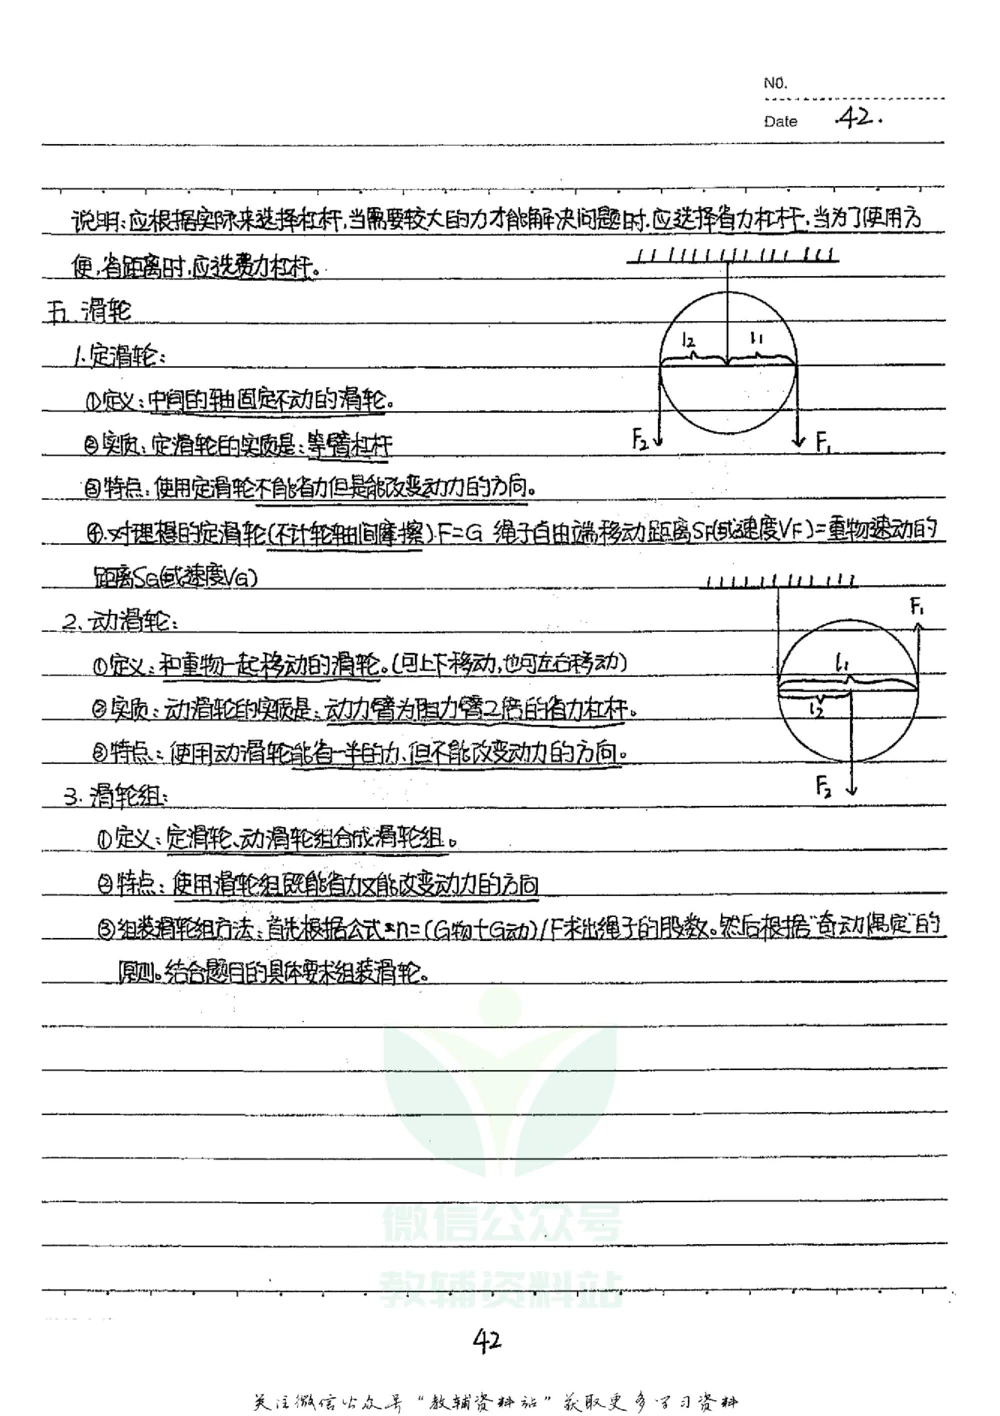 NO.
Date 42.
说明:应根据实际来选择杠杆,当需要较大的力才能解决问题时,应选择省力杠杆,当为了使用方
便,省距离时,应选费力杠杆。
五、滑轮
1.定滑轮:
l2 l1
①定义:中间的轴固定不动的滑轮。
②实质:定滑轮的实质是:等臂杠杆
F2 F1
③特点:使用定滑轮不能省力但是能改变动力的方向。
④.对理想的定滑轮(不计轮轴间摩擦)F=G 绳子自由端移动距离SF(或速度VF)=重物速动的
距离SG(或速度VG)
2.动滑轮:
F1
①定义:和重物一起移动的滑轮。(可上下移动,也可左右移动)
l1
②实质:动滑轮的实质是:动力臂为阻力臂2倍的省力杠杆。
l2
③特点:使用动滑轮能省一半的力,但不能改变动力的方向。
F2
3.滑轮组:
①定义:定滑轮、动滑轮组合成滑轮组。
②特点:使用滑轮组既能省力又能改变动力的方向
③组装滑轮组方法:首先根据公式n=(G物+G动)/F求出绳子的股数。然后根据“奇动偶定”的
原则。结合题目的具体要求组装滑轮。
微信公众号
教辅资料站
42
关注微信公众号“教辅资料站”获取更多学习资料